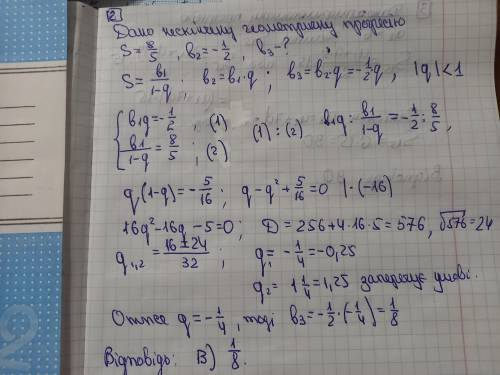 2
Дано нескінчену геометричну прогресію
S = 8/5, b₂ = -1/2, b₃ - ?
S = b₁/(1-q); b₂ = b₁·q; b₃ = b₂·q = -1/2 q, |q| < 1
{ b₁q = -1/2, (1) (1) : (2) b₁q : b₁/(1-q) = -1/2 : 8/5,
b₁/(1-q) = 8/5; (2)
q(1-q) = -5/16; q - q² + 5/16 = 0 | · (-16)
16q² - 16q - 5 = 0; D = 256 + 4·16·5 = 576, √576 = 24
q₁,₂ = (16 ± 24)/32; q₁ = -1/4 = -0,25
q₂ = 1 1/4 = 1,25 заперечує умові.
Отже q = -1/4, тоді b₃ = -1/2 · (-1/4) = 1/8
Відповідь: В) 1/8.